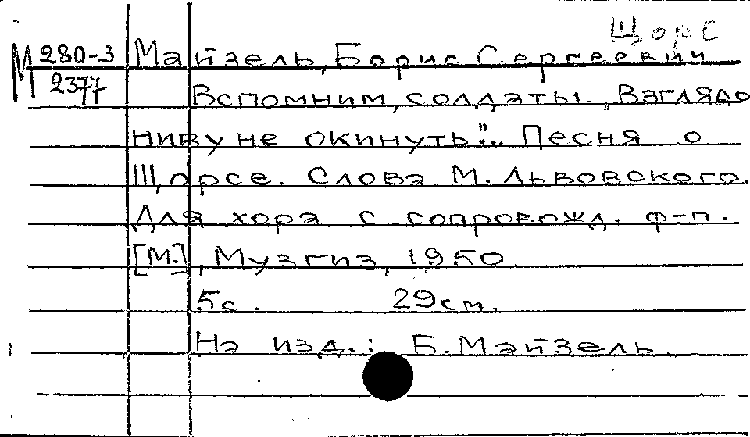 Щорс
М 280-3 Майзель, Борис Сергеевич
2377
Вспомним, солдаты. "Взглядо
ниву не окинуть"... Песня о
Щорсе. Слова М. Львовского.
Для хора с сопровожд. ф-п.
[М.], Музгиз, 1950
5с. 29см.
На изд.: Б. Майзель.